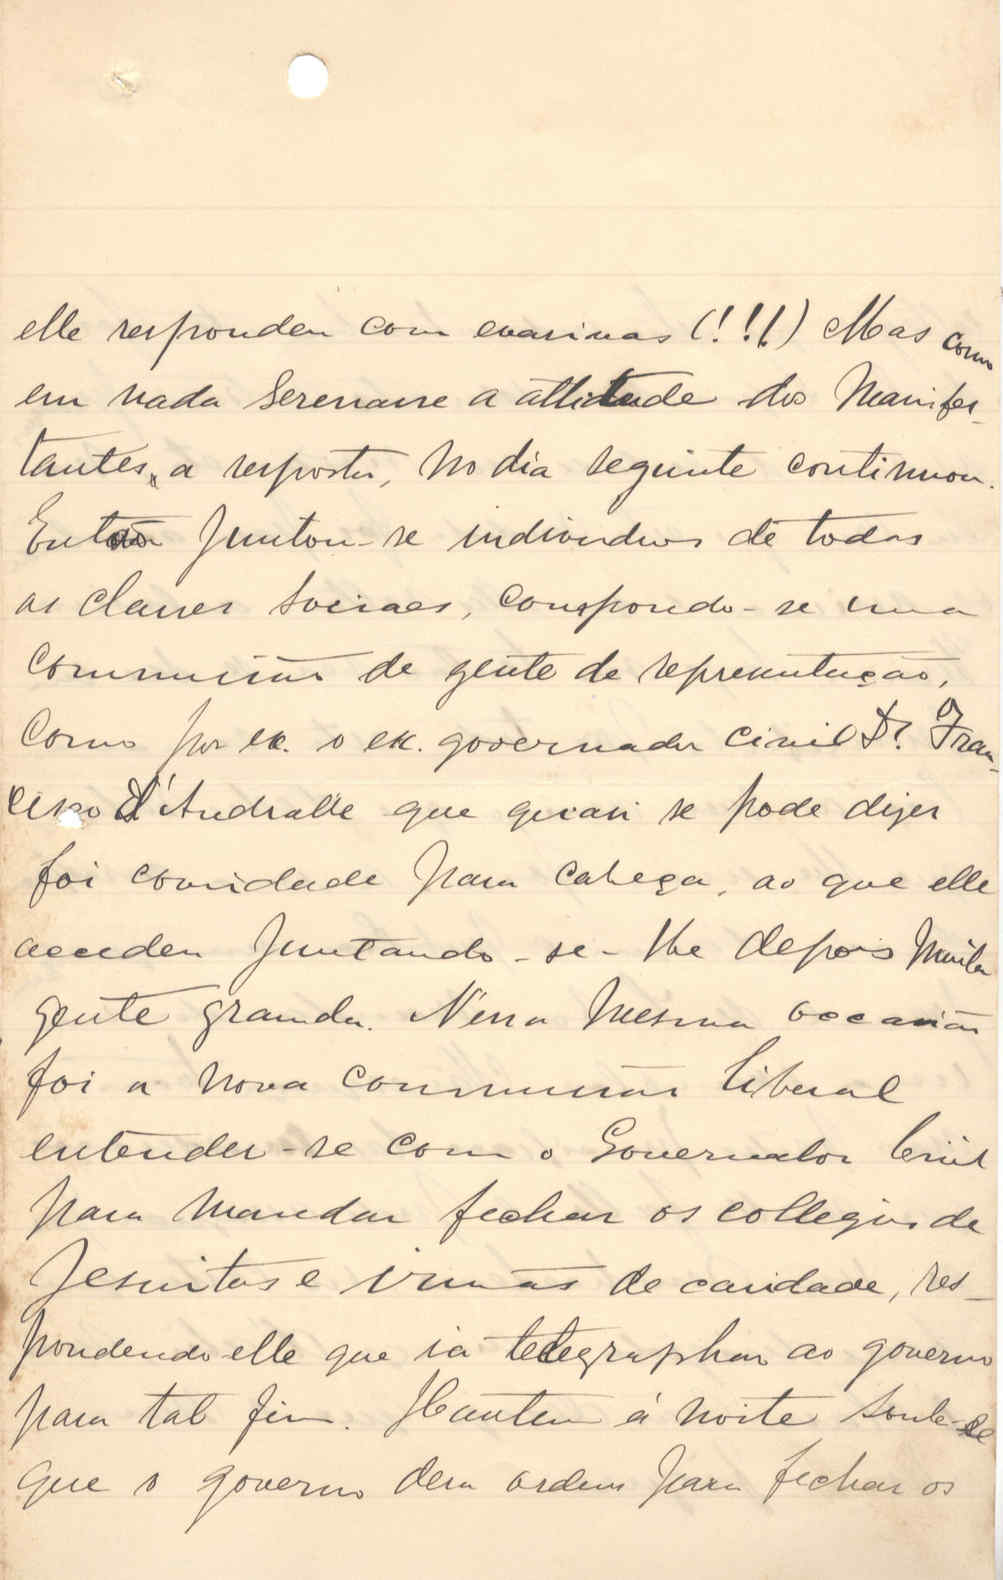 elle respondeu com evasivas (!!!) Mas como
em nada serenasse a attitude dos manifes-
tantes, a resposta, no dia seguinte continuou.
Então juntou-se individuos de todas
as classes sociaes, compondo-se uma
commissão de gente de representação,
como por ex. o ex. governador civil Dr. Fran-
cisco d'Andrade que quasi se pode dizer
foi convidade para cabeça, ao que elle
accedeu juntando-se-lhe depois muita
gente granda. N'essa mesma occasião
foi a nova commissão liberal
entender-se com o Governador Civil
para mandar fechar os collegios de
Jesuitas e irmãs de caridade, res-
pondendo elle que ia telegraphar ao governo
para tal fim. Hontem á noite soube-se
que o governo dera ordem para fechar os